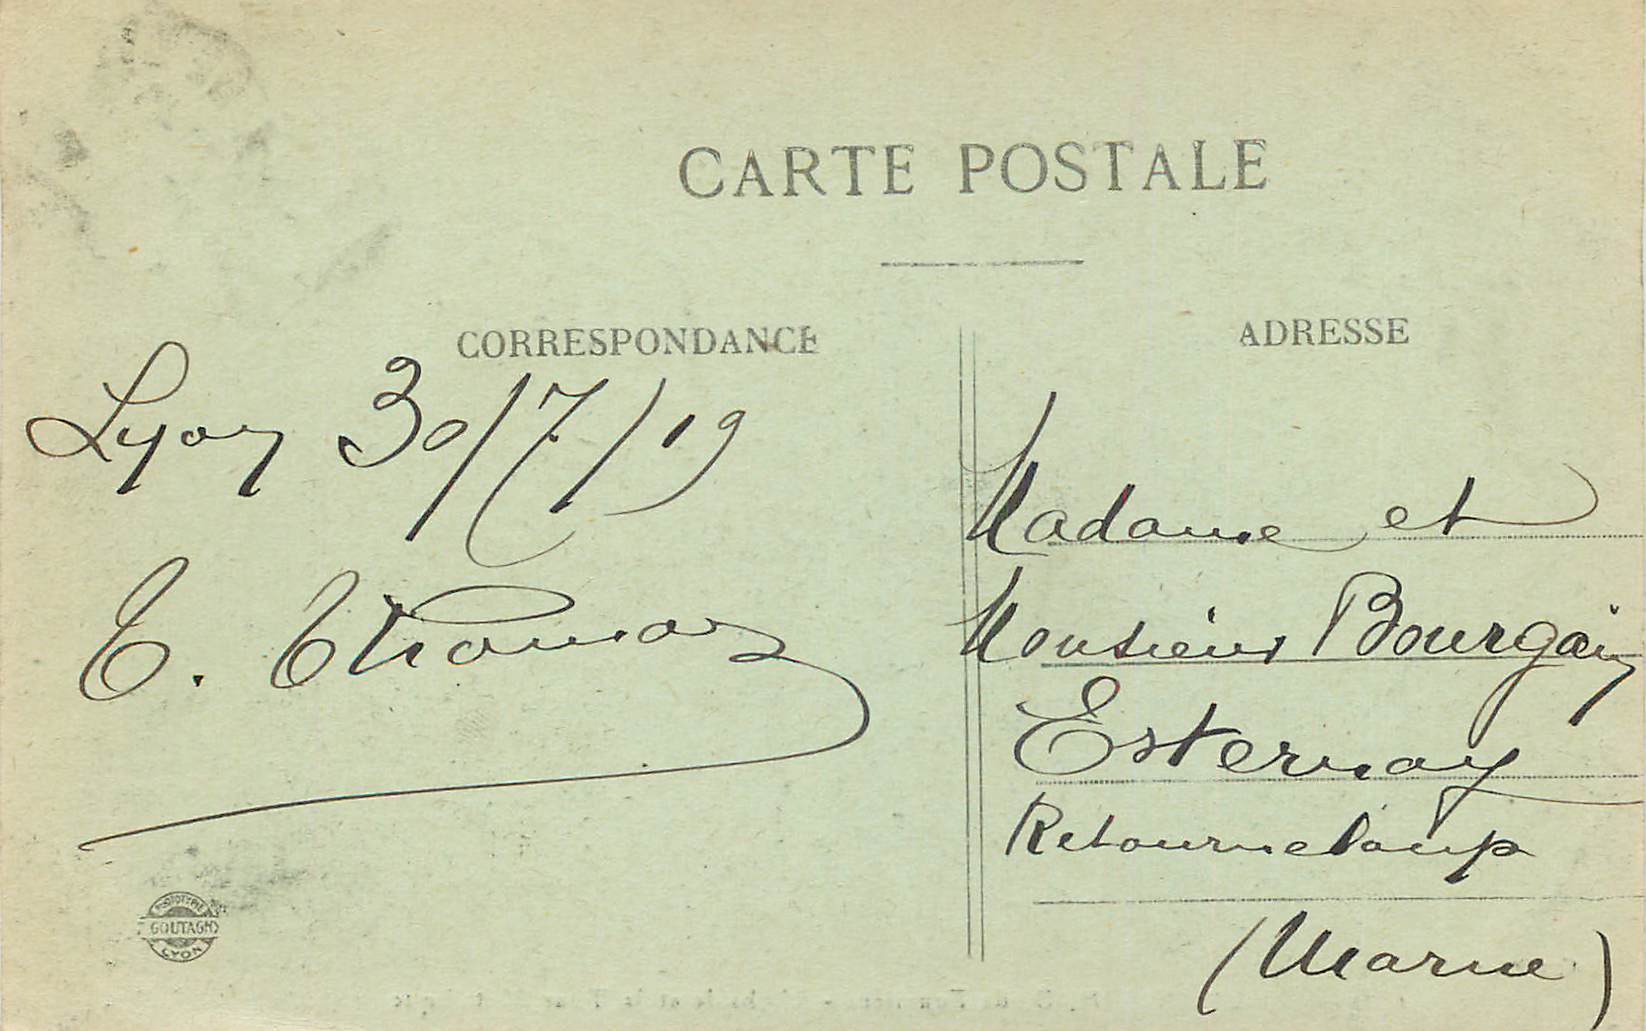 CARTE POSTALE
CORRESPONDANCE
Lyon 30/7/19
E. Thomas
PHOTOTYPIE
GOUTAGNY
LYON
ADRESSE
Madame et
Monsieur Bourgoin
Esternay
Retourneloup
(Marne)